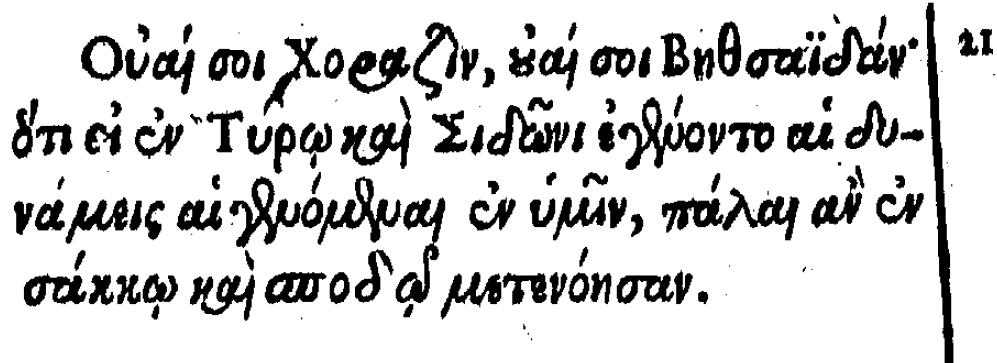 Οὐαί σοι Χοραζὶν, οὐαί σοι Βηθσαϊδάν· 21
ὅτι εἰ ἐν Τύρῳ καὶ Σιδῶνι ἐγένοντο αἱ δυ-
νάμεις αἱ γενόμεναι ἐν ὑμῖν, πάλαι ἂν ἐν
σάκκῳ καὶ σποδῷ μετενόησαν.